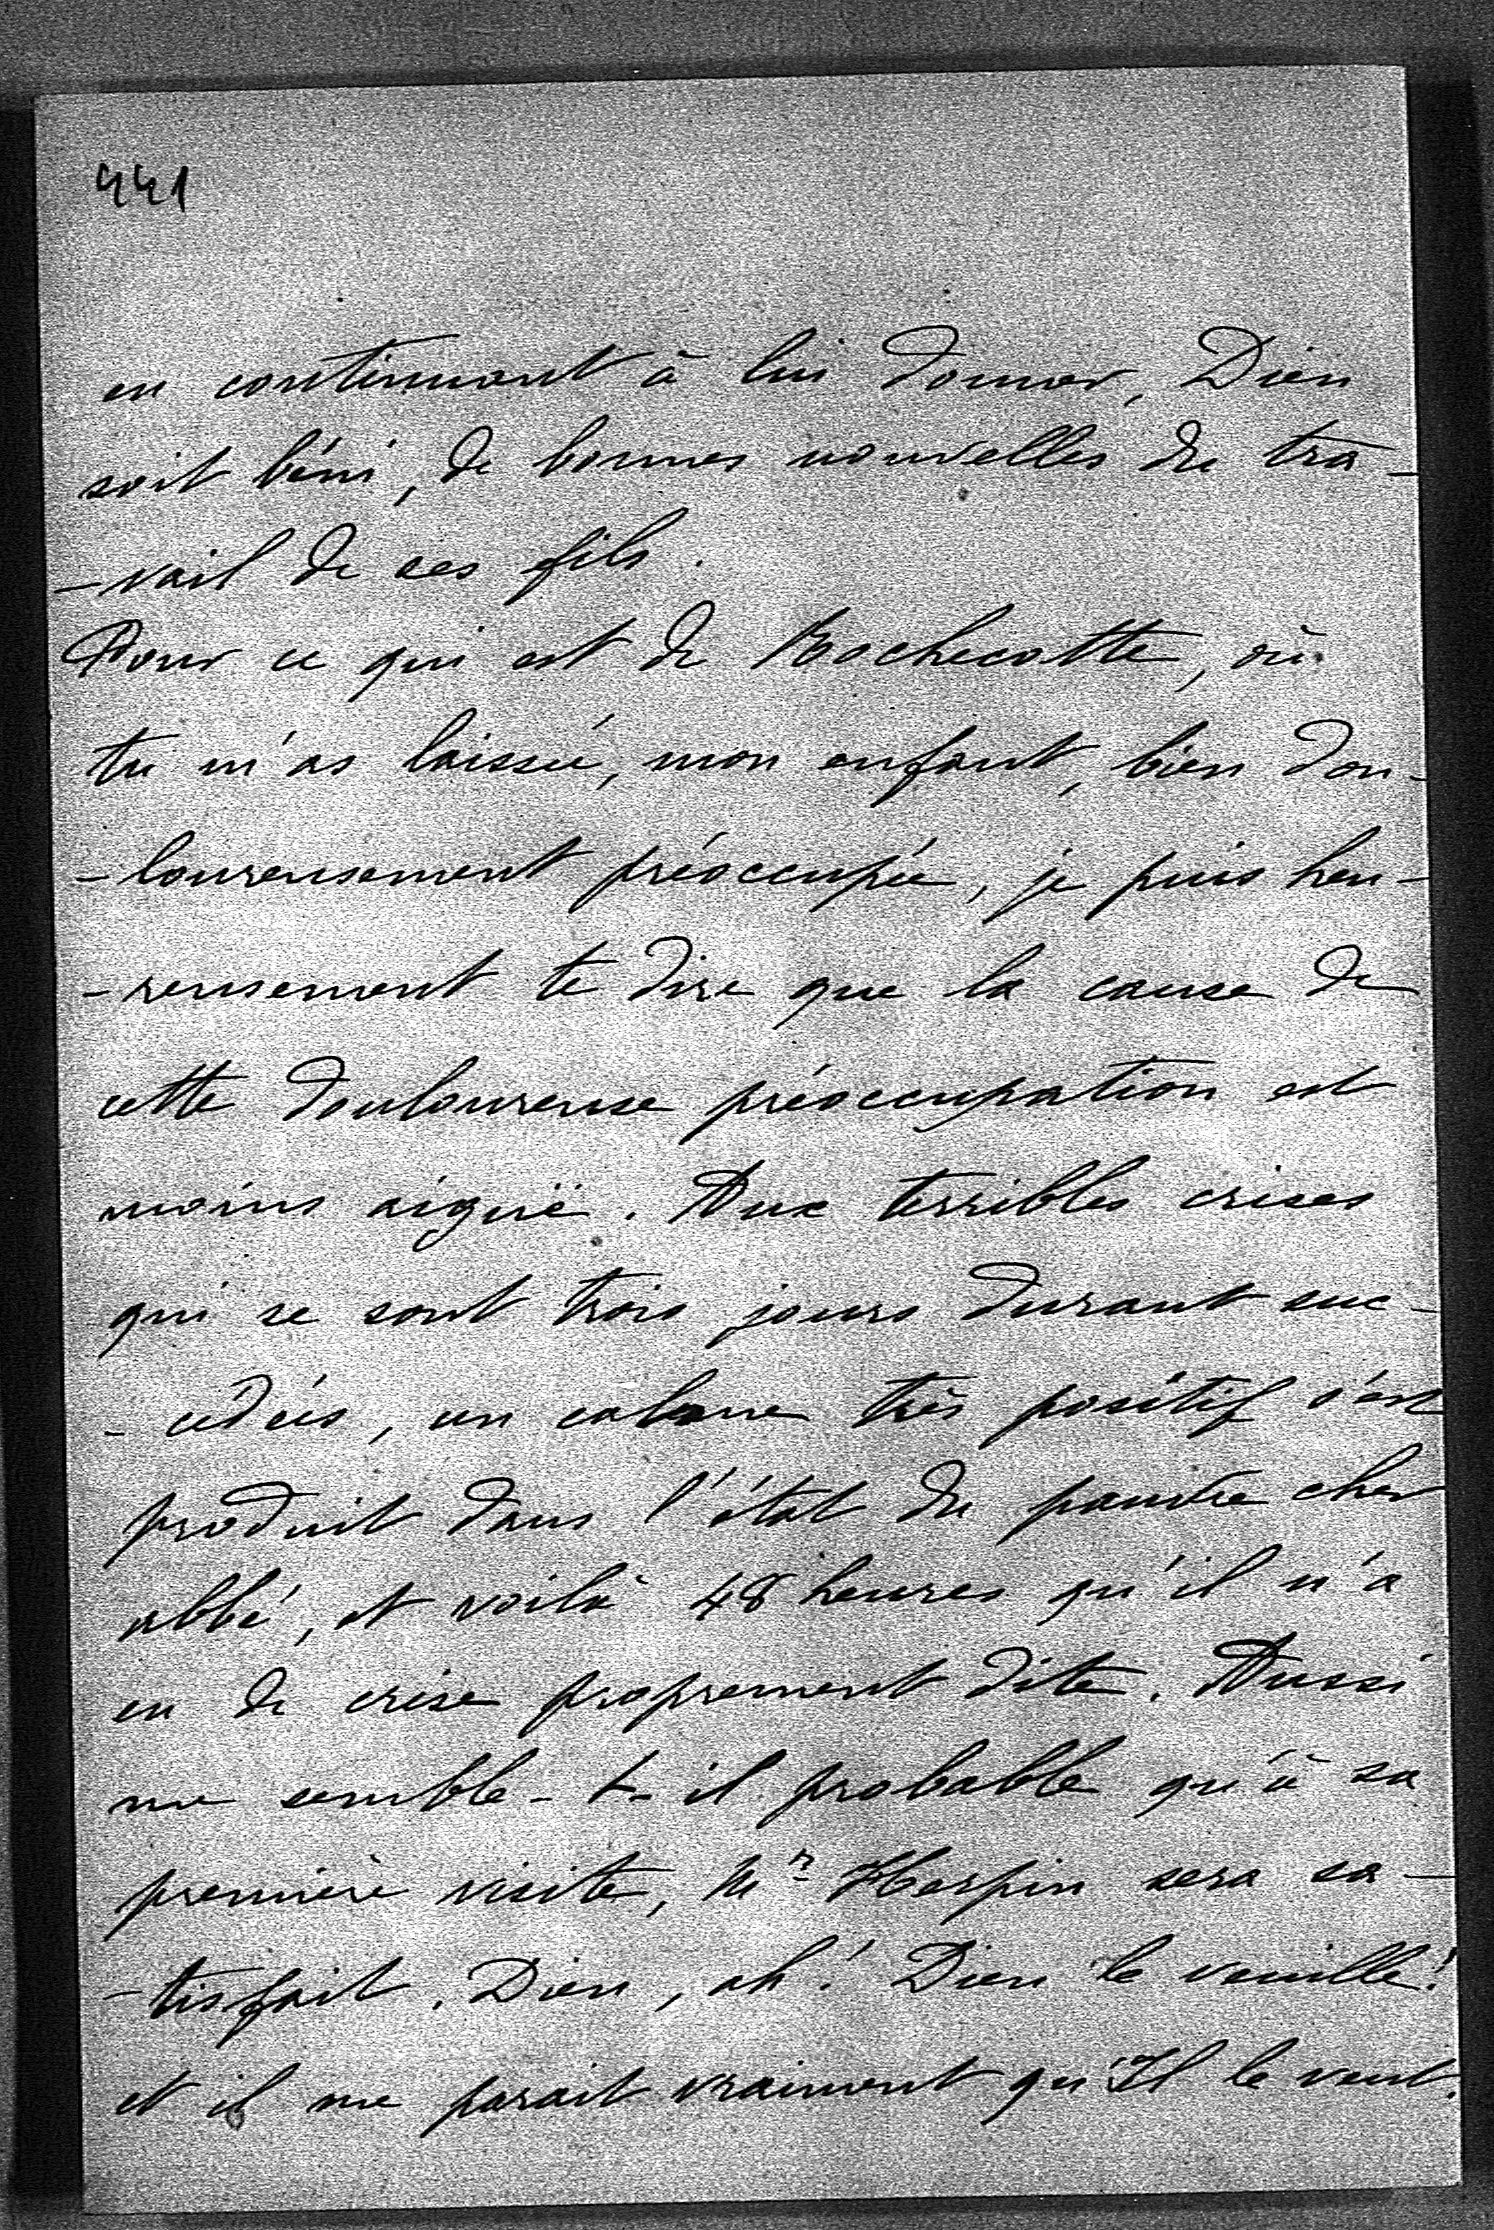 441
en continuant à lui donner, Dieu
soit béni, de bonnes nouvelles du tra-
-vail de ses fils.
Pour ce qui est de Rochecotte, où
tu m'as laissée, mon enfant, bien dou-
-loureusement préoccupée, je puis heu-
-reusement te dire que la cause de
cette douloureuse préoccupation est
moins aiguë. Aux terribles crises
qui se sont trois jours durant suc-
-cédées, un calme très positif s'est
produit dans l'état du pauvre cher
abbé, et voilà 48 heures qu'il n'a
eu de crise proprement dite. Aussi
me semble-t-il probable qu'à sa
première visite, Mr Herpin sera sa-
-tisfait. Dieu, ah! Dieu le veuille!
et il me parait vraiment qu'Il le veut.